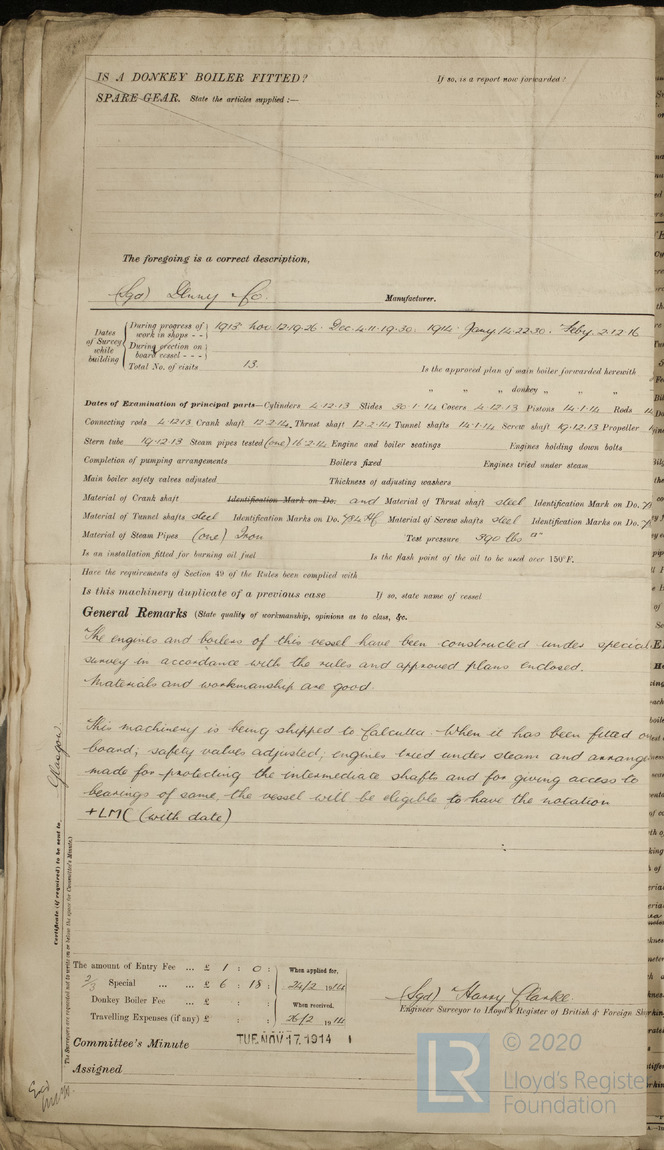 IS A DONKEY BOILER FITTED? If so, is a report now forwarded?
SPARE GEAR. State the articles supplied :—
The foregoing is a correct description,
(Sgd) Denny & Co. Manufacturer.
Dates of Survey while building
During progress of work in shops - - 1913 Nov. 12. 19. 26. Dec. 4. 11. 19. 30. 1914. Jany. 14. 22. 30. Feby. 2. 12. 16
During erection on board vessel - - -
Total No. of visits 13. Is the approved plan of main boiler forwarded herewith
" " " donkey " " "
Dates of Examination of principal parts—Cylinders 4.12.13 Slides 30.1.14 Covers 4.12.13 Pistons 14.1.14 Rods
Connecting rods 4.12.13 Crank shaft 12.2.14 Thrust shaft 12.2.14 Tunnel shafts 14.1.14 Screw shaft 19.12.13 Propeller
Stern tube 19.12.13 Steam pipes tested (one) 16.2.14 Engine and boiler seatings Engines holding down bolts
Completion of pumping arrangements Boilers fixed Engines tried under steam
Main boiler safety valves adjusted Thickness of adjusting washers
Material of Crank shaft Identification Mark on Do. and Material of Thrust shaft steel Identification Mark on Do.
Material of Tunnel shafts steel Identification Marks on Do. Material of Screw shafts steel Identification Marks on Do.
Material of Steam Pipes (one) Iron Test pressure 390 lbs □"
Is an installation fitted for burning oil fuel Is the flash point of the oil to be used over 150°F.
Have the requirements of Section 49 of the Rules been complied with
Is this machinery duplicate of a previous case If so, state name of vessel
General Remarks (State quality of workmanship, opinions as to class, &c.
The engines and boilers of this vessel have been constructed under special
survey in accordance with the rules and approved plans enclosed.
Materials and workmanship are good
This machinery is being shipped to Calcutta. When it has been fitted on
board, safety valves adjusted, engines tried under steam and arrange
made for protecting the intermediate shafts and for giving access to
bearings of same, the vessel will be eligible to have the notation
+LMC (with date)
Certificate (if required) to be sent to Glasgow
The Surveyors are requested not to write on or below the space for Committee's Minute.
The amount of Entry Fee ... £ 1 : 0 : When applied for,
2/3 Special ... ... £ 6 : 18 : 24/2 1914
Donkey Boiler Fee ... £ : : When received,
Travelling Expenses (if any) £ : : 26/2 1914
(Sgd) Harry Clarke
Engineer Surveyor to Lloyd's Register of British & Foreign
Committee's Minute TUE. NOV. 17. 1914
Assigned
LR
© 2020
Lloyd's Register
Foundation